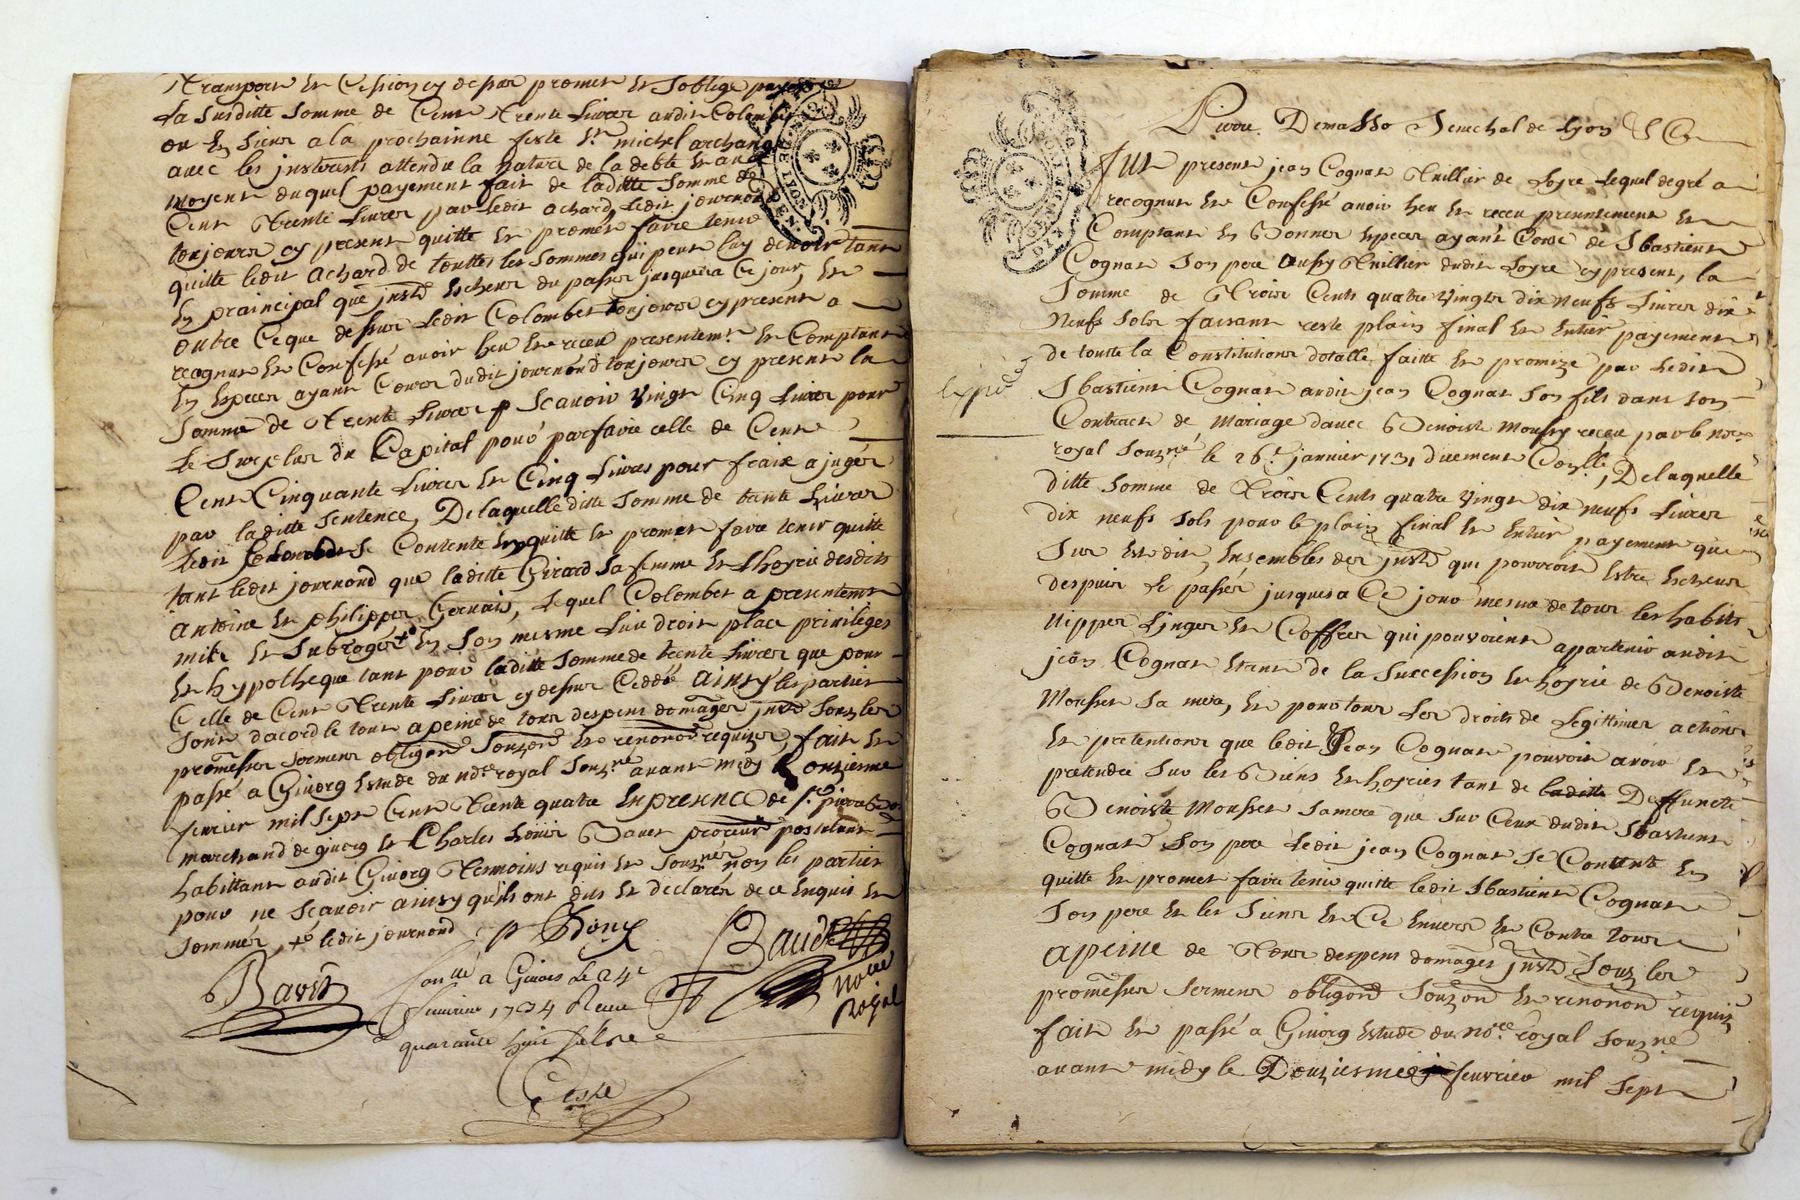 Transport et Cession cy dessus promet et soblige payer
La susditte somme de Cent Trente Livres audit Colombet
ou Es siens a la prochainne feste St michel archange
avec les interests attendu la nature de la debte et au
moyent duquel payement fait de laditte somme de
Cent Trente Livres par ledit achard, ledit journond
toujours cy present quitte et promet faire tenir
quitte ledit achard de touttes les sommes qu'il peut luy devoir tant
En praincipal que jnsts Escheus du passer jusques a Ce jour, Et
outre Ce que dessus ledit Colombet toujours cy present a
recognut et Confessé avoir heu et receu presentemt et Comptant
En Especes ayant Cours dudit journond toujours cy present la
somme de Trente Livres p Scavoir vingt Cinq Livres pour
Le Surplus du Capital pour parfaire celle de Cent
Cent Cinquante Livres et Cinq Livres pour fraix ajugés
par laditte sentence, De laquelle ditte somme de trente Livres
ledit Se Contente En quitte et promet faire tenir quitte
tant ledit journond que laditte Girard sa femme et Lhoyrie desdits
antoine et philippes Gervais, lequel Colombet a presentemt
mit et subroger +o En son mesme Lieu droit place privileges
et hypotheque tant pour laditte somme de trente Livres que pour
Celle de Cent Trente Livres cy dessus Ceddé ainsy les parties
sont dacord le tout a peine de tous despens domages jnsts souz les
promesses serment obligons souzons et renonons requizes, fait et
passé a Givorg Estude du nore royal souzné avant midy le onziesme
fevrier mil sept Cent Trente quatre En presence de sr pierre
marchand de givorg et Charles Loüis Bavet procreur postulant
habittant audit Givorg Temoins requis et souznés non les parties
pour ne Scavoir ainsy quils ont dits et declarés de ce Enquis et
sommés, +o ledit journond
Baudet
Bavet
nore
Royal
Conllé a Givors le 24e
fevrier 1734 Receu
quarante huit sols
Coste
GEN. DE LYON
Pierre Demasso Senechal de Lyon &Cr
Fut present jean Cognat Tuillier de Loyre Lequel de gré a
recognut et Confessé avoir heu et receu presentement et
Comptant En Bonnes Especes ayant Cours de Sbastient
Cognat Son pere aussy Tuillier dudit Loyre cy present, la
Somme de Trois Cents quatre vingts dix neufs Livres dix
neufs sols faisant reste plain final et Entier payement
de toutte la Constitution dotalle faitte et promize par ledit
Sbastient Cognat audit jean Cognat son fils dans son
Expié
Contract de mariage d'avec Benoiste Moussy receu par le nore
royal souzné le 26e janvier 1731 duement Conllé, De laquelle
ditte somme de Trois Cents quatre vingts dix neufs Livres
dix neufs sols pour le plain final et Entier payement que
Sur Est dit, Ensembles des jnsts qui pourroit Estre Escheus
despuis le passés jusques a Ce jour mesme de tous les habits
nippes Linges et Coffres qui pouvoient apartenir audit
jean Cognat Etant de la Succession et hoyrie de Benoiste
Mousset sa mere, et pour tous Les droits de Legittimes actions
et pretentions que ledit jean Cognat pouvoit avoir et
pretendre sur les Biens et hoyries tant de laditte Deffuncte
Benoiste Mousset sa mere que sur Ceux dudit Sbastient
Cognat Son pere ledit jean Cognat Se Contente En
quitte et promet faire tenir quitte ledit Sbastient Cognat
Son pere et les Siens et Ce Envers et Contre tous
a peine de Tous despens domages jnsts Souz les
promesses Serment obligons Souzons et renonons requiz
fait et passé a Givorg Estude du nore royal souzné
avant midy le Douziesme fevrier mil sept